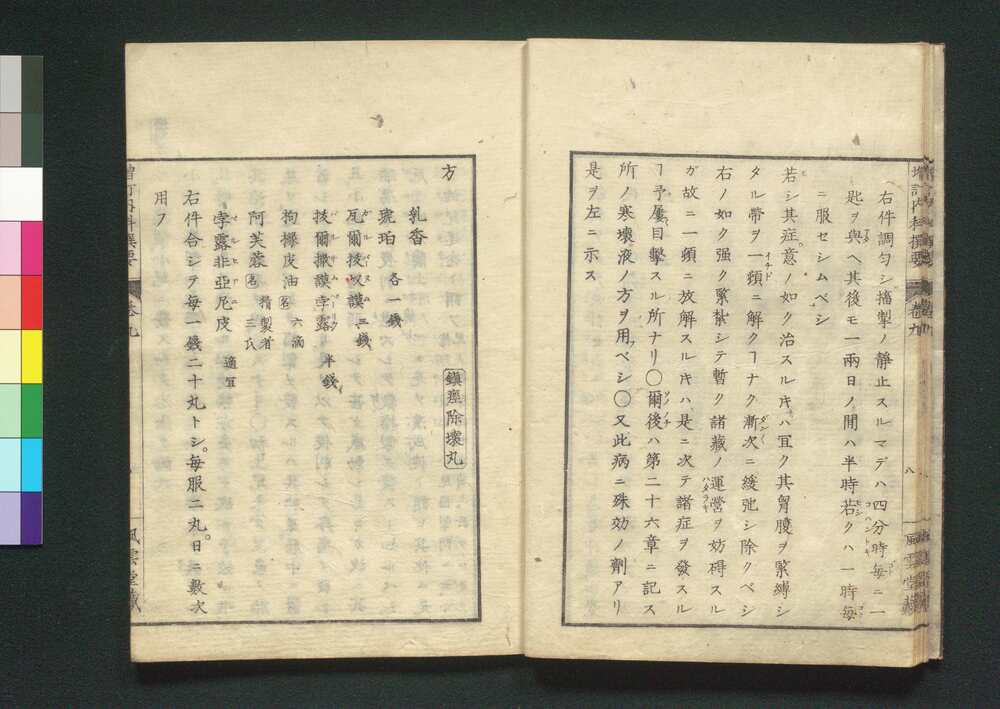 増訂内科撰要 巻九 八 風雲堂藏
右件調匀シ搐掣ノ靜止スルマデハ四分時毎ニ一
匙ヲ與ヘ其後モ一兩日ノ間ハ半時若クハ一時毎
ニ服セシムベシ
若シ其症意ノ如ク治スルキハ冝ク其胷腹ヲ緊縛シ
タル帶ヲ一頻ニ解クヿナク漸次ニ緩弛シ除クベシ
右ノ如ク强ク緊紮シテ暫ク諸藏ノ運營ヲ妨碍スル
ガ故ニ一頻ニ放解スルキハ是ニ次テ諸症ヲ發スル
ヿ予屢目擊スル所ナリ〇爾後ハ第二十六章ニ記ス
所ノ寒壞液ノ方ヲ用ベシ〇又此病ニ殊効ノ劑アリ
是ヲ左ニ示ス
鎭痙除壞丸
方
乳香
琥珀 各一錢
瓦爾抜奴謨 三錢
抜爾撒謨孛露 半錢
枸櫞皮油 名 六滴
阿芙蓉 名 精製者 三氏
孛露非亞尼皮 適宜
右件合シテ毎一錢二十丸トシ。毎服二丸。日ニ數次
用フ
増訂内科撰要 巻九 風雲堂藏